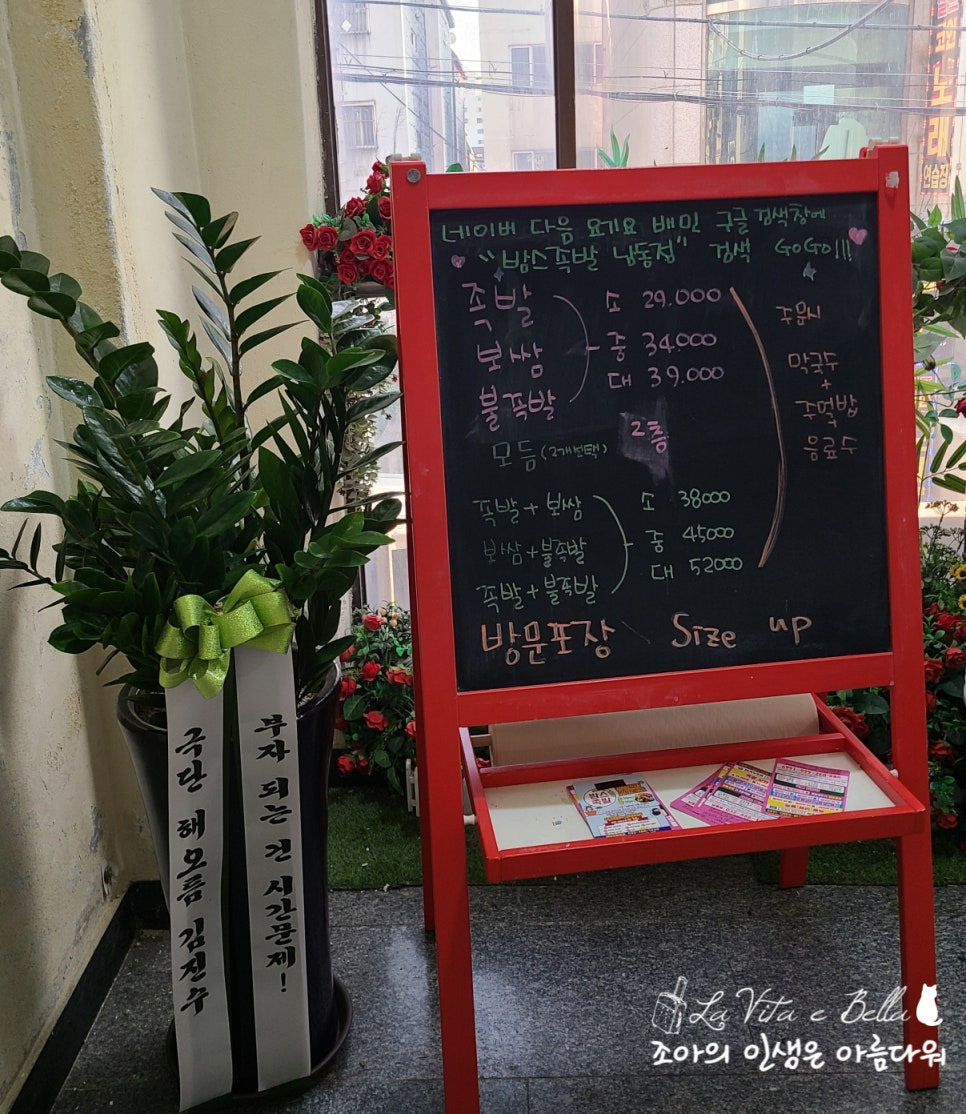 네이버 다음 요기요 배민 구글 검색창에
"밤스족발 남동점" 검색 GoGo!!!
족발
보쌈
불족발
소 29.000
중 34.000
대 39.000
2층
모듬 (2개선택)
족발 + 보쌈
보쌈 + 불족발
족발 + 불족발
소 38000
중 45000
대 52000
주문시
막국수
+
주먹밥
음료수
방문포장 Size up
극단 해오름 김진수
부자 되는 건 시간문제!
노래
연습장
La Vita e Bella
조아의 인생은 아름다워